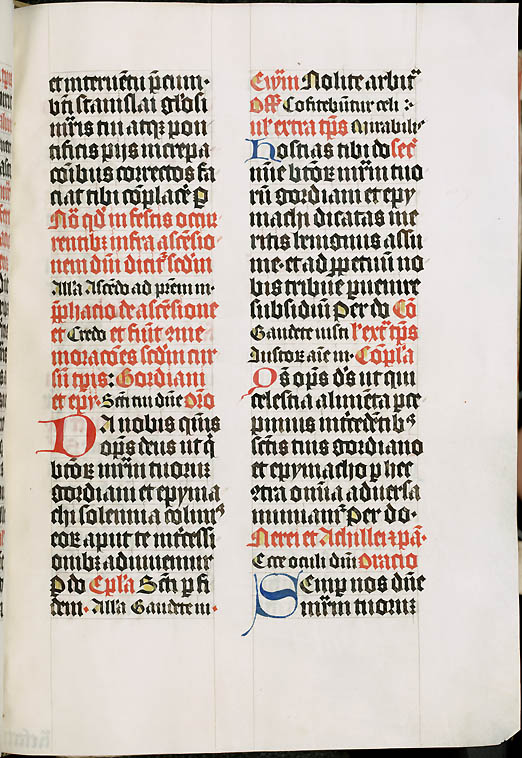 et interuētu p̄cum·
bti stanislai gl̄osi
mr̄is tui atqꝫ pon
tificis pijs increpa
cōibus correctos fa
ciat tibi cōplacē p̲
Nō qd̄ in festis occur
rentibꝫ infra ascēsio
nem dn̄i dicit̄ scd̄m
All̄a Ascēdo ad prēm m·
p̄phacio de ascēsione
et Credo et fiūt ꝯme
moracōes scd̄m cur
sū tp̄is: Gordiani
et epy· Sctī tui dn̄e or̄o
Da nobis qm̄s
op̄s deus ut q̄
btōꝝ mr̄m tuoruꝝ
gordiani et epyma
chi solennia colimꝰ
eoꝝ aput te int̄cessi
onibꝫ adiuuemur
p̲ do Ep̄la Sctī p̲ fi
dem· All̄a Gaudete iu·
Ewm̄ Nolite arbitr̄
Off̄ Cōfitebūtur celi :·
ul̓ extra tp̄s Mirabilꝫ
Hostias tibi do sec̄
mīe btōꝝ mr̄m tuo
rū gordiani et epy
machi dicatas me
ritis benignus assu
me· et ad p̲petuūi no
bis tribue p̲uenire
subsidiūi Per do Cō
Gaudete iusti l̓ ext̓ tp̄s
Iustoꝝ aīe in· Cōpl̄a
Qs̄ op̄s ds̄ ut qui
celestia alimēta p̲ce
pimus int̄cedētibꝫ
sctīs tuis gordiano
et epymacho p̲ hec
ꝯtra omīa aduersa
muniam̄ Per do·
Nerei et Achillei ⁊ pā·
Ecce oculi dn̄i Oracio
Semp̲ nos dn̄e
mr̄m tuoruꝝ